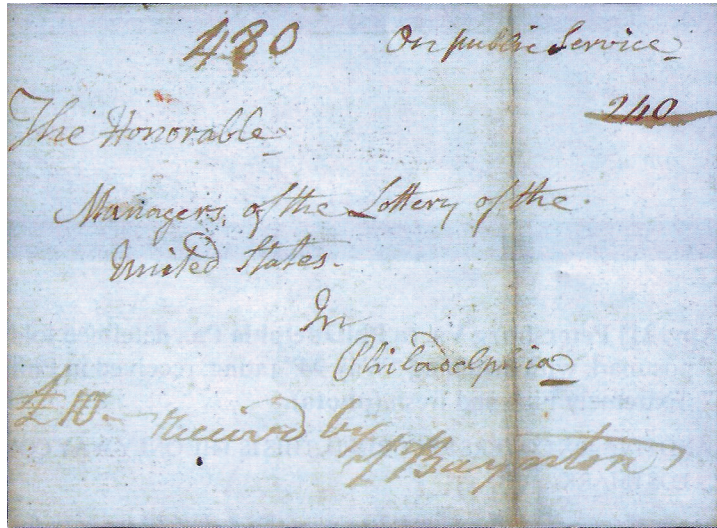 480 On public Service
240
The Honorable
Managers of the Lottery of the
United States
In
Philadelphia
£10 received by
Baynton